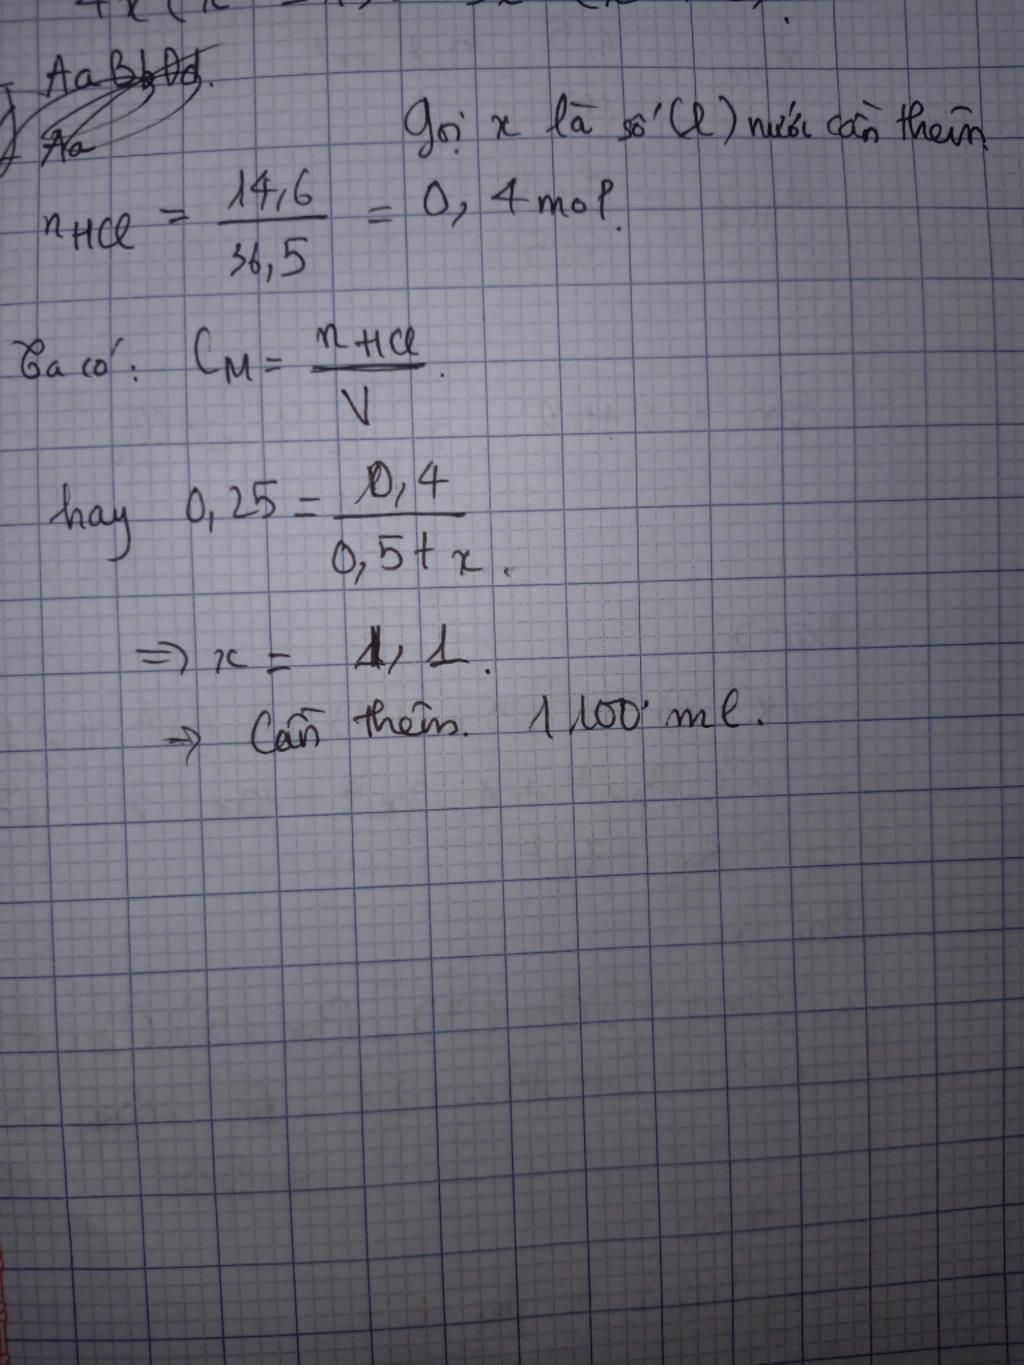 AaBbDd.
Aa
Gọi x là số (l) nước cần thêm
nHCl = 14,6 / 36,5 = 0,4 mol.
Ta có: CM = nHCl / V.
hay 0,25 = 0,4 / 0,5 + x.
=> x = 1,1.
→ Cần thêm. 1100 ml.